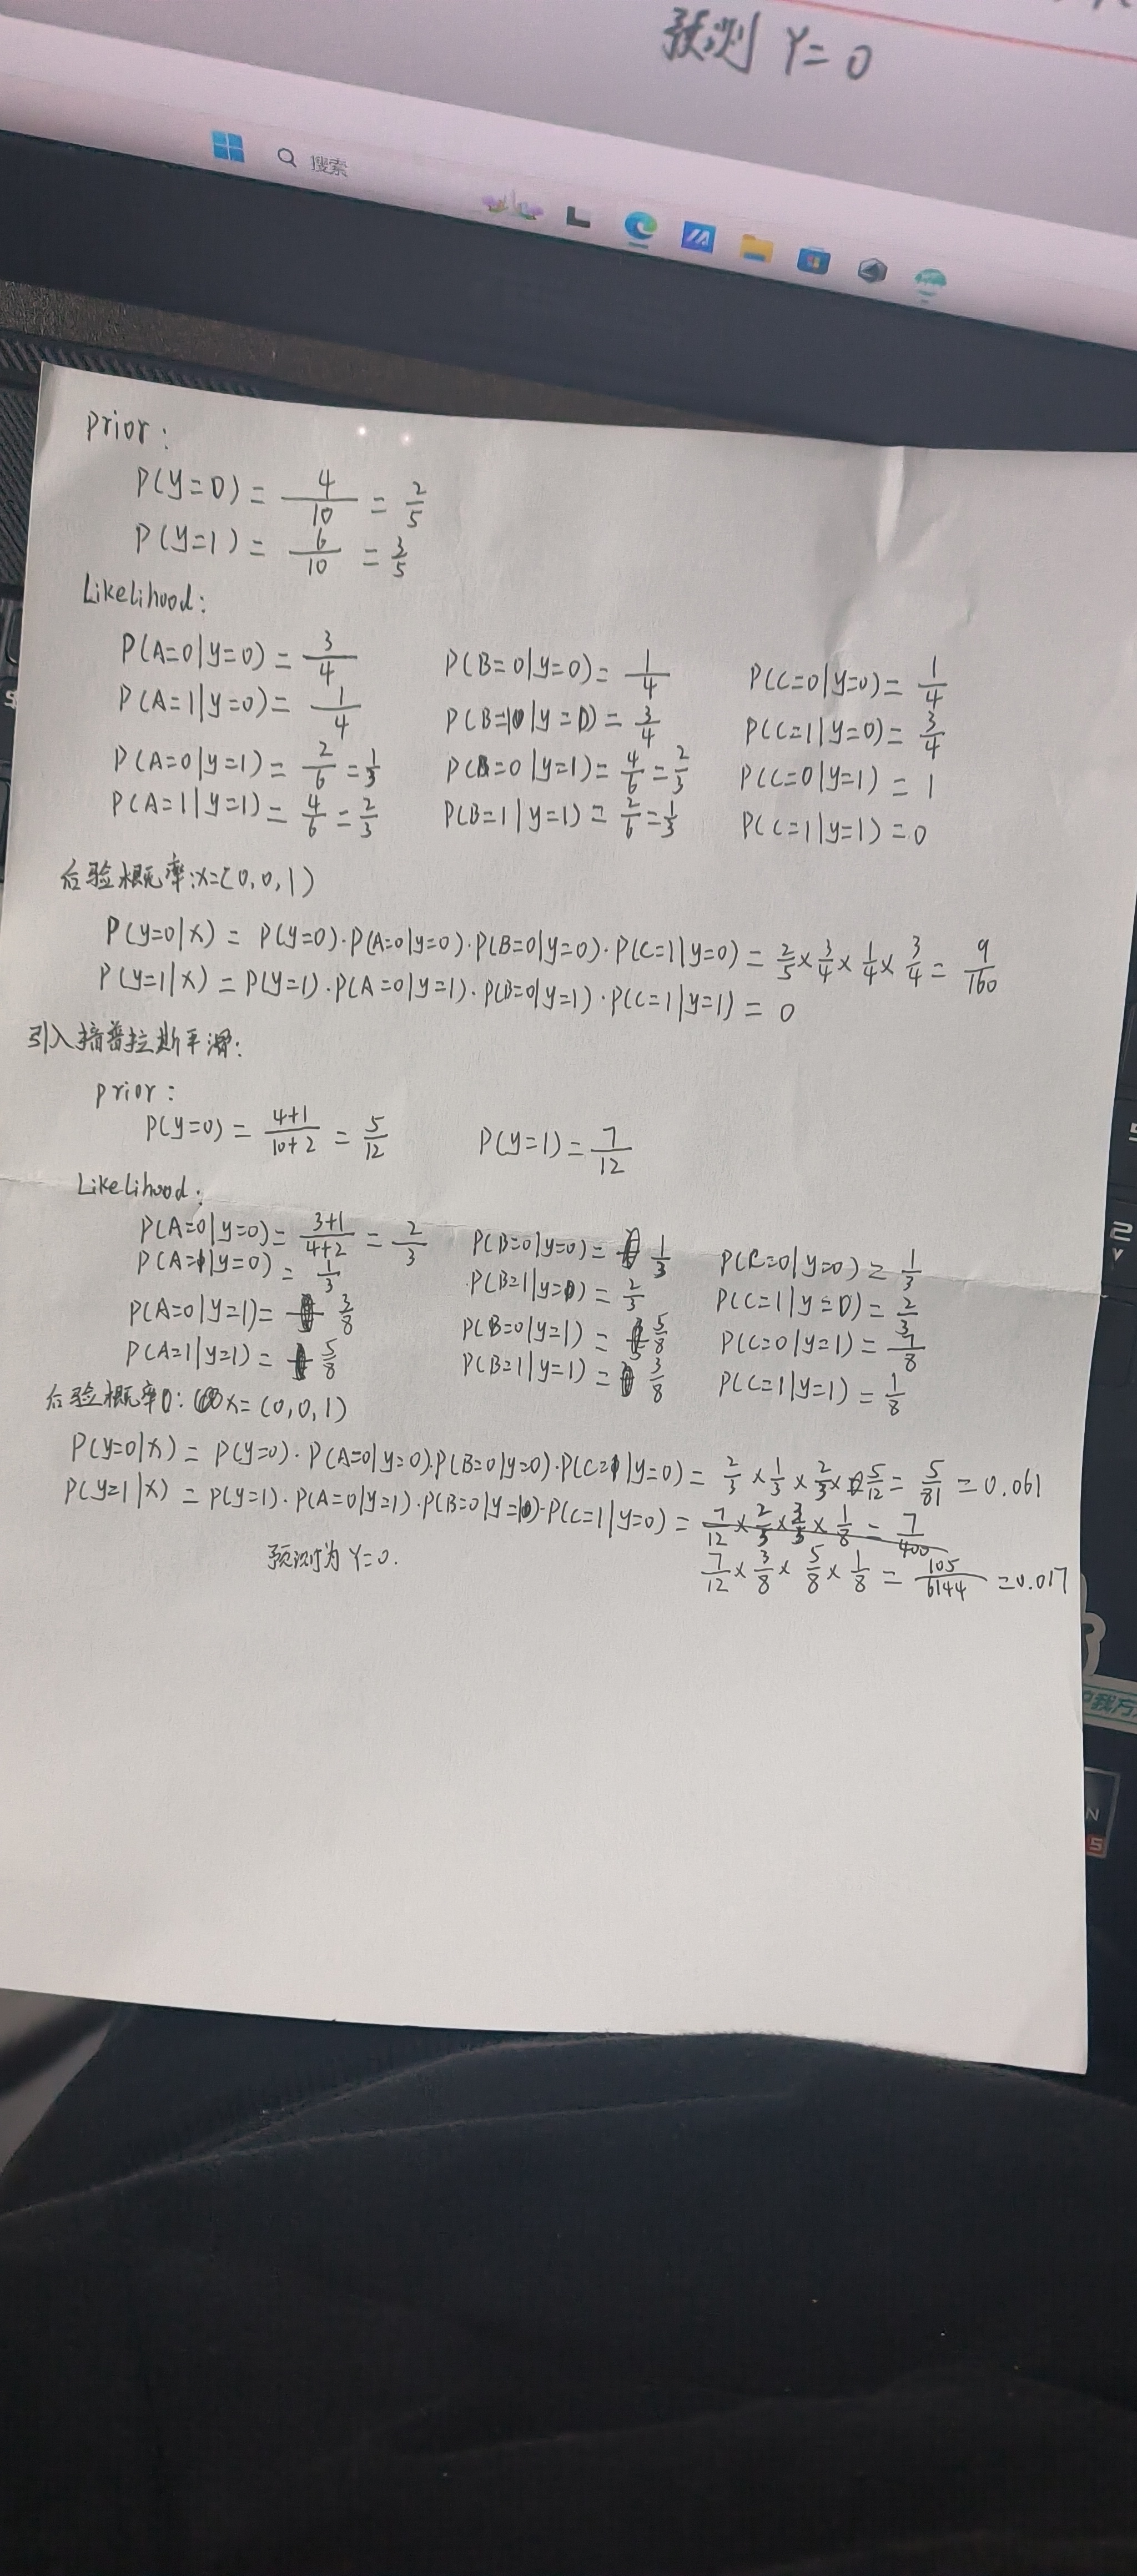 预测 Y=0
搜索
Prior:
P(y=0) = 4/10 = 2/5
P(y=1) = 6/10 = 3/5
Likelihood:
P(A=0|y=0) = 3/4 P(B=0|y=0) = 1/4 P(C=0|y=0) = 1/4
P(A=1|y=0) = 1/4 P(B=1|y=0) = 3/4 P(C=1|y=0) = 3/4
P(A=0|y=1) = 2/6 = 1/3 P(B=0|y=1) = 4/6 = 2/3 P(C=0|y=1) = 1
P(A=1|y=1) = 4/6 = 2/3 P(B=1|y=1) = 2/6 = 1/3 P(C=1|y=1) = 0
后验概率:x=(0,0,1)
P(y=0|x) = P(y=0)·P(A=0|y=0)·P(B=0|y=0)·P(C=1|y=0) = 2/5 × 3/4 × 1/4 × 3/4 = 9/160
P(y=1|x) = P(y=1)·P(A=0|y=1)·P(B=0|y=1)·P(C=1|y=1) = 0
引入普拉斯平滑:
prior:
P(y=0) = 4+1/10+2 = 5/12 P(y=1) = 7/12
Likelihood:
P(A=0|y=0) = 3+1/4+2 = 2/3 P(B=0|y=0) = 1/3 P(C=0|y=0) = 1/3
P(A=1|y=0) = 1/3 P(B=1|y=0) = 2/3 P(C=1|y=0) = 2/3
P(A=0|y=1) = 3/8 P(B=0|y=1) = 5/8 P(C=0|y=1) = 7/8
P(A=1|y=1) = 5/8 P(B=1|y=1) = 3/8 P(C=1|y=1) = 1/8
后验概率: x=(0,0,1)
P(y=0|x) = P(y=0)·P(A=0|y=0)·P(B=0|y=0)·P(C=1|y=0) = 2/3 × 1/3 × 2/3 × 5/12 = 5/81 = 0.061
P(y=1|x) = P(y=1)·P(A=0|y=1)·P(B=0|y=1)·P(C=1|y=0) = 7/12 × 2/5 × 3/5 × 1/8 = 7/400
7/12 × 3/8 × 5/8 × 1/8 = 105/6144 = 0.017
预测为 Y=0.